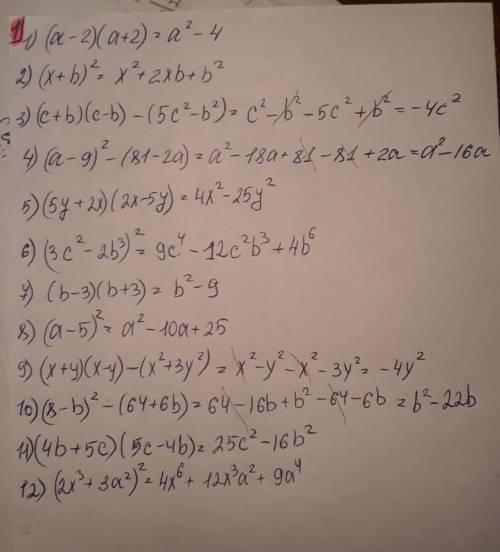 1) 1) (a-2)(a+2) = a² - 4
2) (x+b)² = x² + 2xb + b²
3) (c+b)(c-b) - (5c²-b²) = c² - b² - 5c² + b² = -4c²
4) (a-9)² - (81-2a) = a² - 18a + 81 - 81 + 2a = a² - 16a
5) (5y+2x)(2x-5y) = 4x² - 25y²
6) (3c² - 2b³)² = 9c⁴ - 12c²b³ + 4b⁶
7) (b-3)(b+3) = b² - 9
8) (a-5)² = a² - 10a + 25
9) (x+y)(x-y) - (x²+3y²) = x² - y² - x² - 3y² = -4y²
10) (8-b)² - (64+6b) = 64 - 16b + b² - 64 - 6b = b² - 22b
11) (4b+5c)(5c-4b) = 25c² - 16b²
12) (2x³ + 3a²)² = 4x⁶ + 12x³a² + 9a⁴